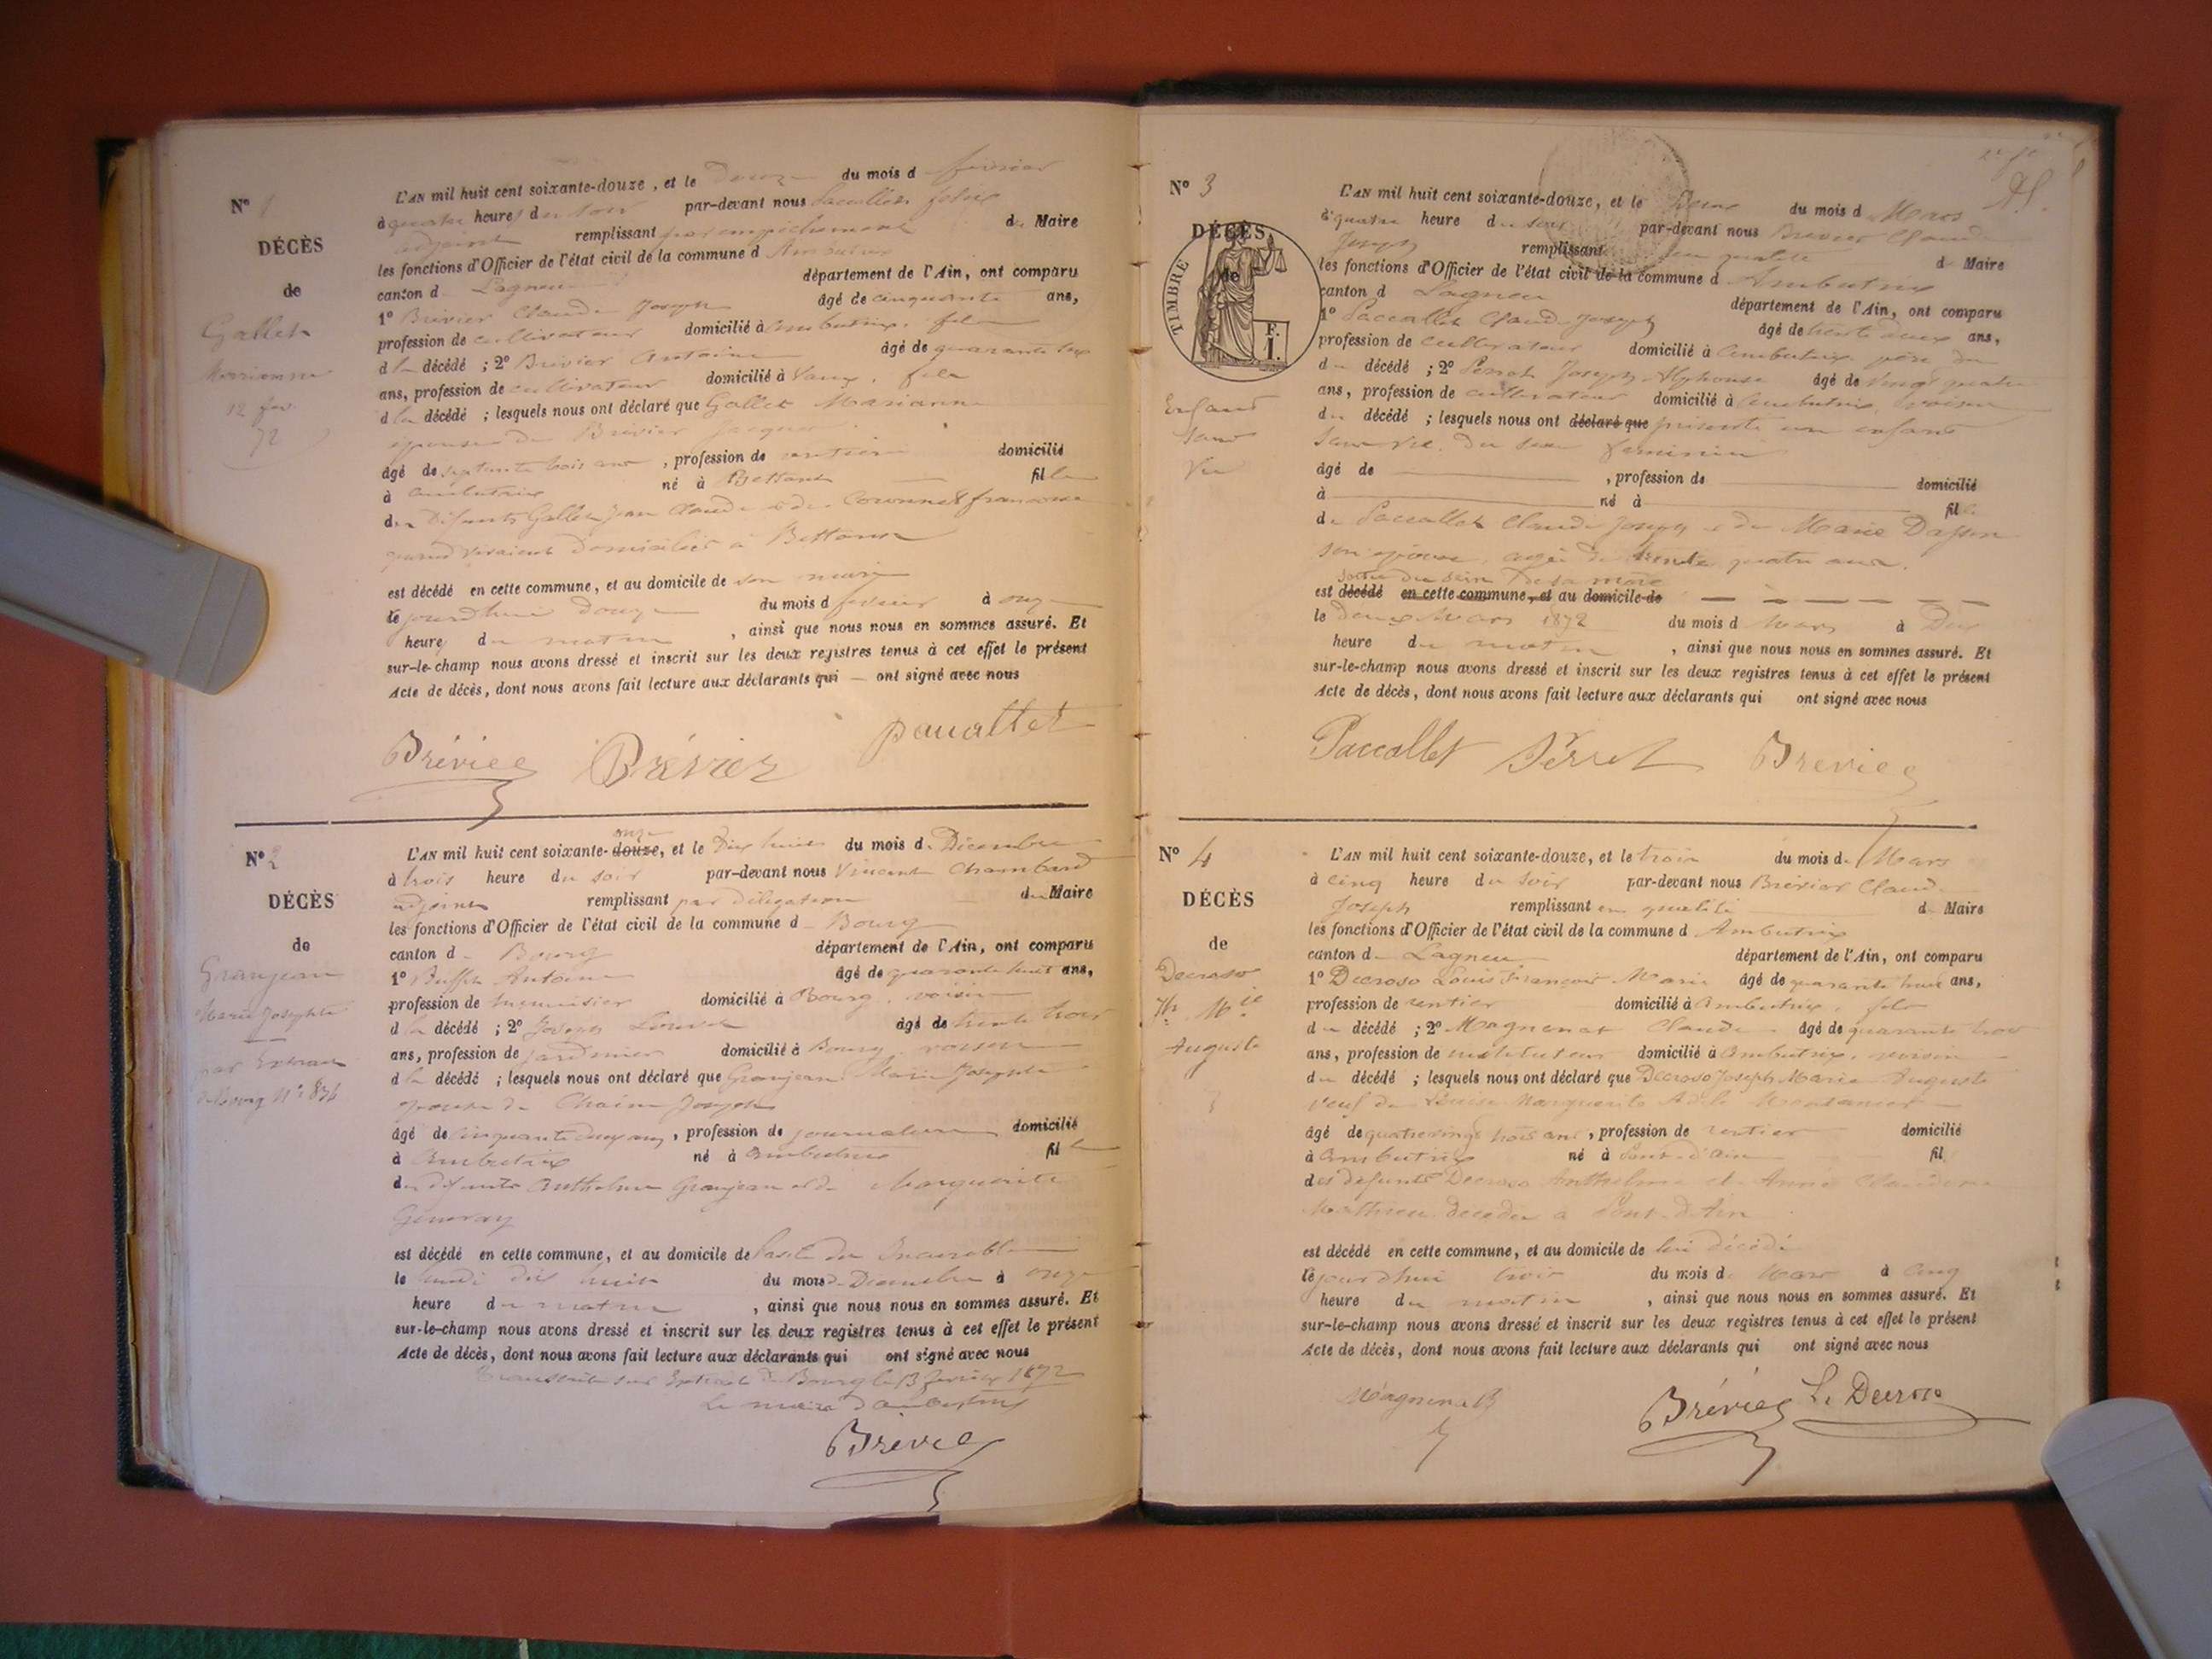 N° 1
DÉCÈS
de
Gallet
Marianne
12 fev.
72
L'AN mil huit cent soixante-douze, et le douze du mois d février
à quatre heures du soir par-devant nous Paccallet felix
adjoint remplissant par empêchement du Maire
les fonctions d'Officier de l'état civil de la commune d Ambutrix
canton d Lagnieu département de l'Ain, ont comparu
1° Brévier Claude Joseph âgé de cinquante ans,
profession de cultivateur domicilié à ambutrix, fils
d la décédé ; 2° Brévier Antoine âgé de quarante six
ans, profession de cultivateur domicilié à Vaux, fils
d la décédé ; lesquels nous ont déclaré que Gallet Marianne
épouse de Brévier Jacques
âgé de septante trois ans, profession de rentière domicilié
à ambutrix né à Bettant fille
des Défunts Gallet Jean Claude et de francoise
quand vivaient domiciliés à Bettant
est décédé en cette commune, et au domicile de son mari
le jourdhui douze du mois d février à onze
heure du matin, ainsi que nous nous en sommes assuré. Et
sur-le-champ nous avons dressé et inscrit sur les deux registres tenus à cet effet le présent
Acte de décès, dont nous avons fait lecture aux déclarants qui — ont signé avec nous
Brévier Brévier paccallet
N° 2
DÉCÈS
de
Granjean
Marie Josephte
par Extrait
de Bourg N° 834
onze
L'AN mil huit cent soixante-douze, et le Dix huit du mois de Décembre
à trois heure du soir par-devant nous Vincent Chambard
adjoint remplissant par délégation du Maire
les fonctions d'Officier de l'état civil de la commune d Bourg
canton d Bourg département de l'Ain, ont comparu
1° Antoine âgé de quarante huit ans,
profession de menuisier domicilié à Bourg, voisin
d la décédé ; 2° Joseph âgé de trente trois
ans, profession de jardinier domicilié à Bourg, voisin
d la décédé ; lesquels nous ont déclaré que Granjean Marie Josephte
épouse de Joseph
âgé de cinquante deux ans, profession de journalière domicilié
à Ambutrix né à Ambutrix fille
des défunts Anthelme Granjean et de Marguerite
est décédé en cette commune, et au domicile de
le lundi dix huit du mois de Décembre à onze
heure du matin, ainsi que nous nous en sommes assuré. Et
sur-le-champ nous avons dressé et inscrit sur les deux registres tenus à cet effet le présent
Acte de décès, dont nous avons fait lecture aux déclarants qui ont signé avec nous
Transcrite sur Extrait de Bourg le 13 février 1872
Le maire d'ambutrix
Brévier
N° 3
DÉCÈS
de
TIMBRE
F.
1.
Enfant
sans
Vie
L'AN mil huit cent soixante-douze, et le Deux du mois d Mars
à quatre heure du soir par-devant nous Brévier Claude
Joseph remplissant en qualité d Maire
les fonctions d'Officier de l'état civil de la commune d Ambutrix
canton d Lagnieu département de l'Ain, ont comparu
1° Paccallet Claude Joseph âgé de trente deux ans,
profession de cultivateur domicilié à Ambutrix père du
du décédé ; 2° Perret Joseph Alphonse âgé de Vingt quatre
ans, profession de cultivateur domicilié à Ambutrix voisin
du décédé ; lesquels nous ont déclaré que présenté un enfant
sans vie, du sexe féminin
âgé de , profession de domicilié
à né à fil
de Paccallet Claude Joseph et de Marie Dasson
son épouse, agée de trente quatre ans.
sortie du sein de sa mère
est décédé en cette commune, et au domicile de
le Deux Mars 1872 du mois d Mars à Dix
heure du matin, ainsi que nous nous en sommes assuré. Et
sur-le-champ nous avons dressé et inscrit sur les deux registres tenus à cet effet le présent
Acte de décès, dont nous avons fait lecture aux déclarants qui ont signé avec nous
Paccallet Perret Brévier
N° 4
DÉCÈS
de
Decroso
Jph Mie
Auguste
L'AN mil huit cent soixante-douze, et le trois du mois de Mars
à cinq heure du soir par-devant nous Brévier Claude
Joseph remplissant en qualité d Maire
les fonctions d'Officier de l'état civil de la commune d Ambutrix
canton d Lagnieu département de l'Ain, ont comparu
1° Decroso Louis François Marie âgé de quarante huit ans,
profession de rentier domicilié à Ambutrix, fils
du décédé ; 2° Magnenat Claude âgé de quarante trois
ans, profession de instituteur domicilié à Ambutrix, voisin
du décédé ; lesquels nous ont déclaré que Decroso Joseph Marie Auguste
veuf de Louise Marguerite Adèle
âgé de quatrevingt trois ans, profession de rentier domicilié
à Ambutrix né à Pont-d'Ain fil
des défunts Decroso Anthelme et Anne Claudine
Mathieu décédés à Pont-d'Ain
est décédé en cette commune, et au domicile de lui décédé
le jourdhui trois du mois de Mars à Cinq
heure du matin, ainsi que nous nous en sommes assuré. Et
sur-le-champ nous avons dressé et inscrit sur les deux registres tenus à cet effet le présent
Acte de décès, dont nous avons fait lecture aux déclarants qui ont signé avec nous
Magnenat Brévier L. Decroso